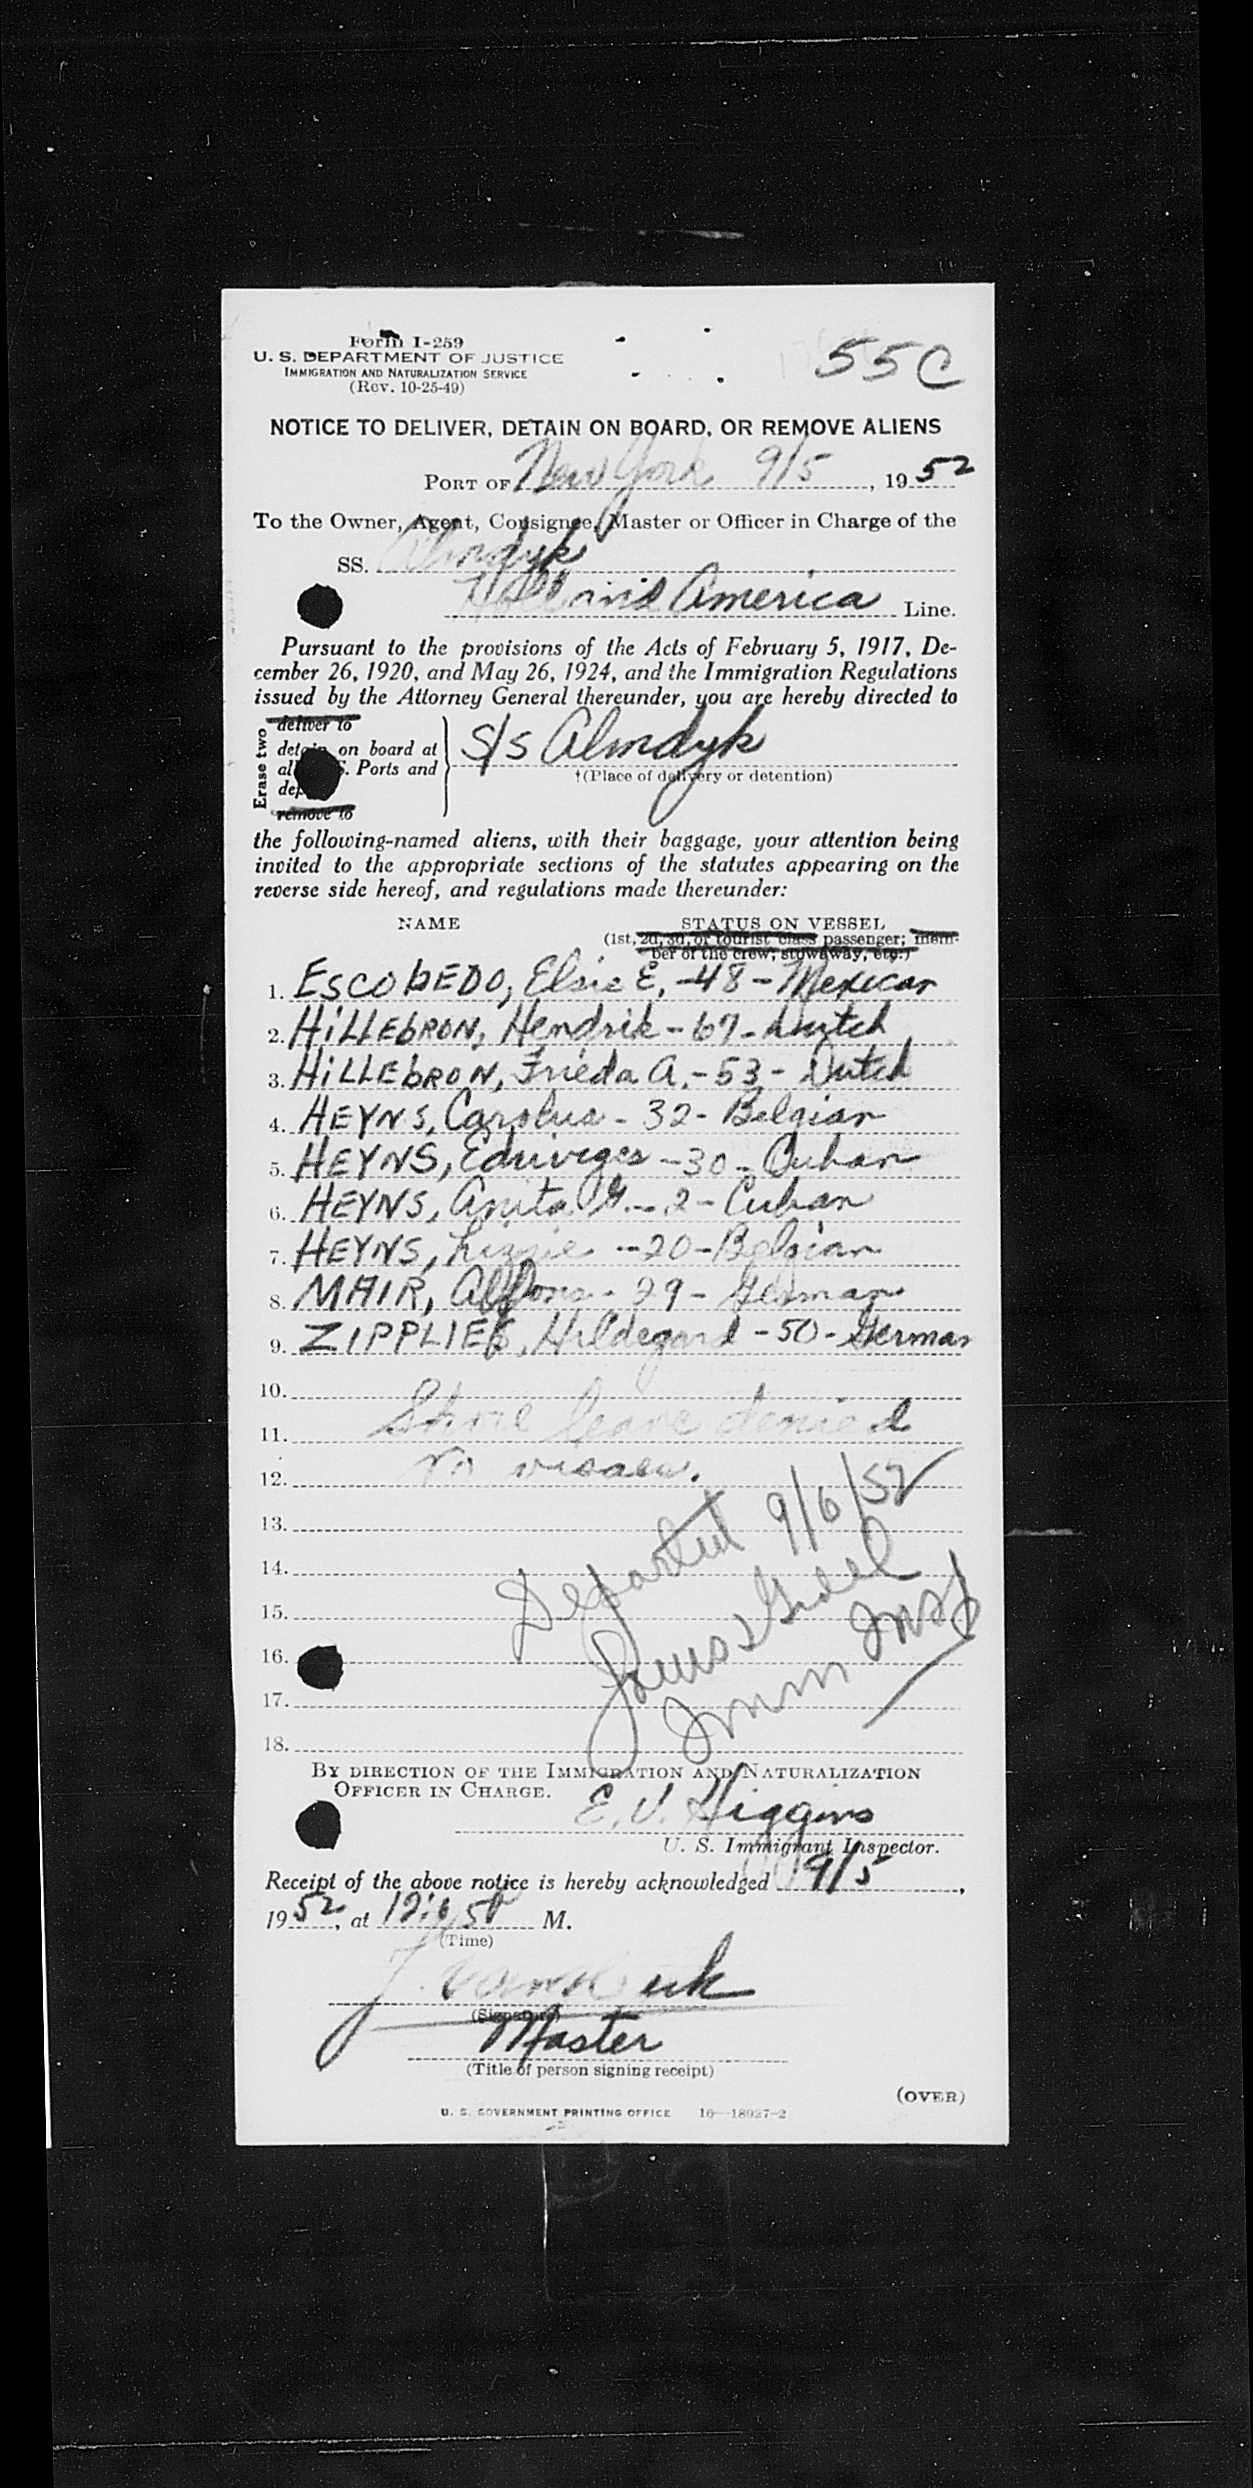 Form I-259
U. S. DEPARTMENT OF JUSTICE
IMMIGRATION AND NATURALIZATION SERVICE
(Rev. 10-25-49)
55C
NOTICE TO DELIVER, DETAIN ON BOARD, OR REMOVE ALIENS
PORT OF New York 9/5, 1952
To the Owner, Agent, Consignee, Master or Officer in Charge of the
SS. Almdyk
Holland America Line.
Pursuant to the provisions of the Acts of February 5, 1917, De-
cember 26, 1920, and May 26, 1924, and the Immigration Regulations
issued by the Attorney General thereunder, you are hereby directed to
Erase two
deliver to
detain on board at
all U. S. Ports and
remove to
S/S Almdyk
†(Place of delivery or detention)
the following-named aliens, with their baggage, your attention being
invited to the appropriate sections of the statutes appearing on the
reverse side hereof, and regulations made thereunder:
NAME STATUS ON VESSEL
(1st, 2d, 3d, or tourist class passenger; mem-
ber of the crew; stowaway, etc.)
1. ESCOBEDO, Elsie E. -48- Mexican
2. HILLEBRON, Hendrik - 67 - Dutch
3. HILLEBRON, Frieda A. - 53 - Dutch
4. HEYNS, Carolus - 32 - Belgian
5. HEYNS, Eduviges - 30 - Cuban
6. HEYNS, Anita G. - 2 - Cuban
7. HEYNS, Lizzie - 20 - Belgian
8. MAIR, Alfons - 29 - German
9. ZIPPLIES, Hildegard - 50 - German
10.
11. Shore leave denied
12. No visaes.
13.
14.
15.
16.
17.
18.
Departed 9/6/52
Imm Insp
BY DIRECTION OF THE IMMIGRATION AND NATURALIZATION
OFFICER IN CHARGE.
E. V. Higgins
U. S. Immigrant Inspector.
Receipt of the above notice is hereby acknowledged 9/5,
1952, at M.
(Time)
J.
(Signature)
Master
(Title of person signing receipt)
(OVER)
U. S. GOVERNMENT PRINTING OFFICE 16—18027-2